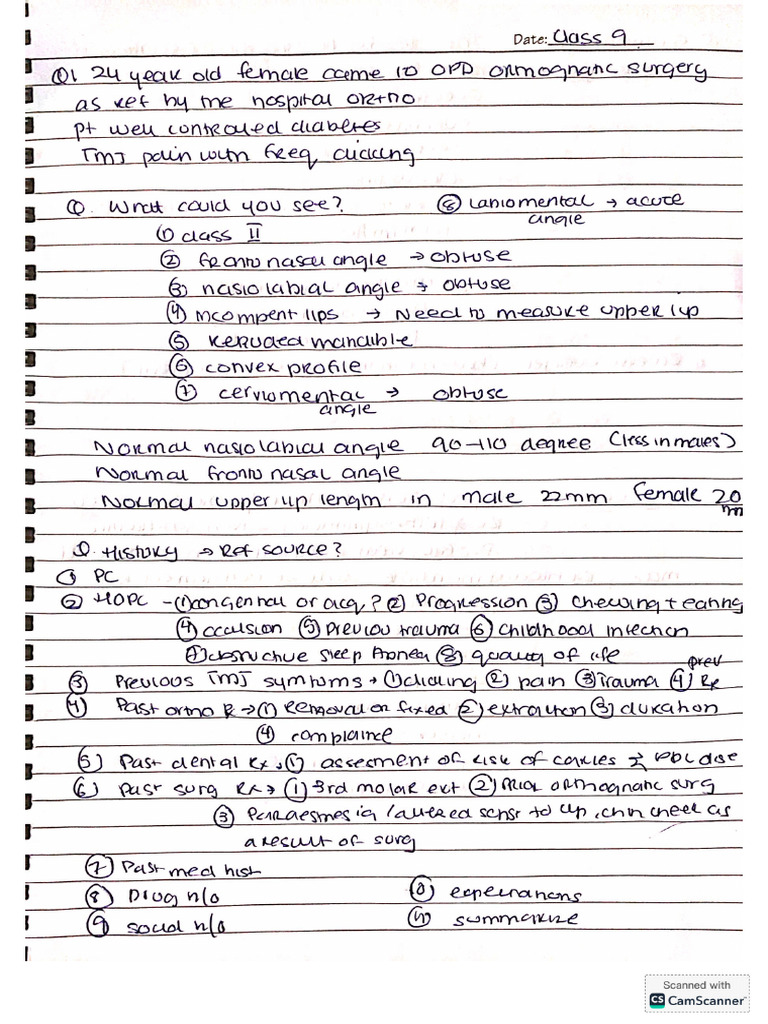 Date: Class 9
Q1 24 year old female came to OPD orthognathic surgery
as ref by the hospital ortho
pt well controlled diabetes
TMJ pain with freq clicking
Q. What could you see?
⑧ Labiomental → acute
angle
① class II
② fronto nasal angle → obtuse
③ nasiolabial angle → obtuse
④ incompent lips → Need to measure upper lip
⑤ Retruded mandible
⑥ convex profile
⑦ cerviomental → obtuse
angle
Normal nasiolabial angle 90-110 degree (less in males)
Normal fronto nasal angle
Normal upper lip length in male 22mm female 20
m
Q. History → Ref source?
① PC
② HOPC - ① congenital or acq? ② Progression ③ chewing + eating
④ occulsion ⑤ previou trauma ⑥ childhood infection
⑦ obstructive sleep Aponea ⑧ quality of life
③ Previous TMJ symptoms → ① clicking ② pain ③ Trauma ④ prev Rx
④ Past ortho R → ① Removal or fixed ② extraction ③ duration
④ complaince
⑤ Past dental Rx → ① assesment of risk of caries
⑥ Past surg Rx → ① 3rd molar ext ② Prior orthognathic surg
③ Paraesthesia / altered sensr to lip, chin cheek as
a result of surg
⑦ Past med hist
⑧ Drug h/o
⑨ social h/o
⑩ expectations
⑪ summarize
Scanned with
CS CamScanner